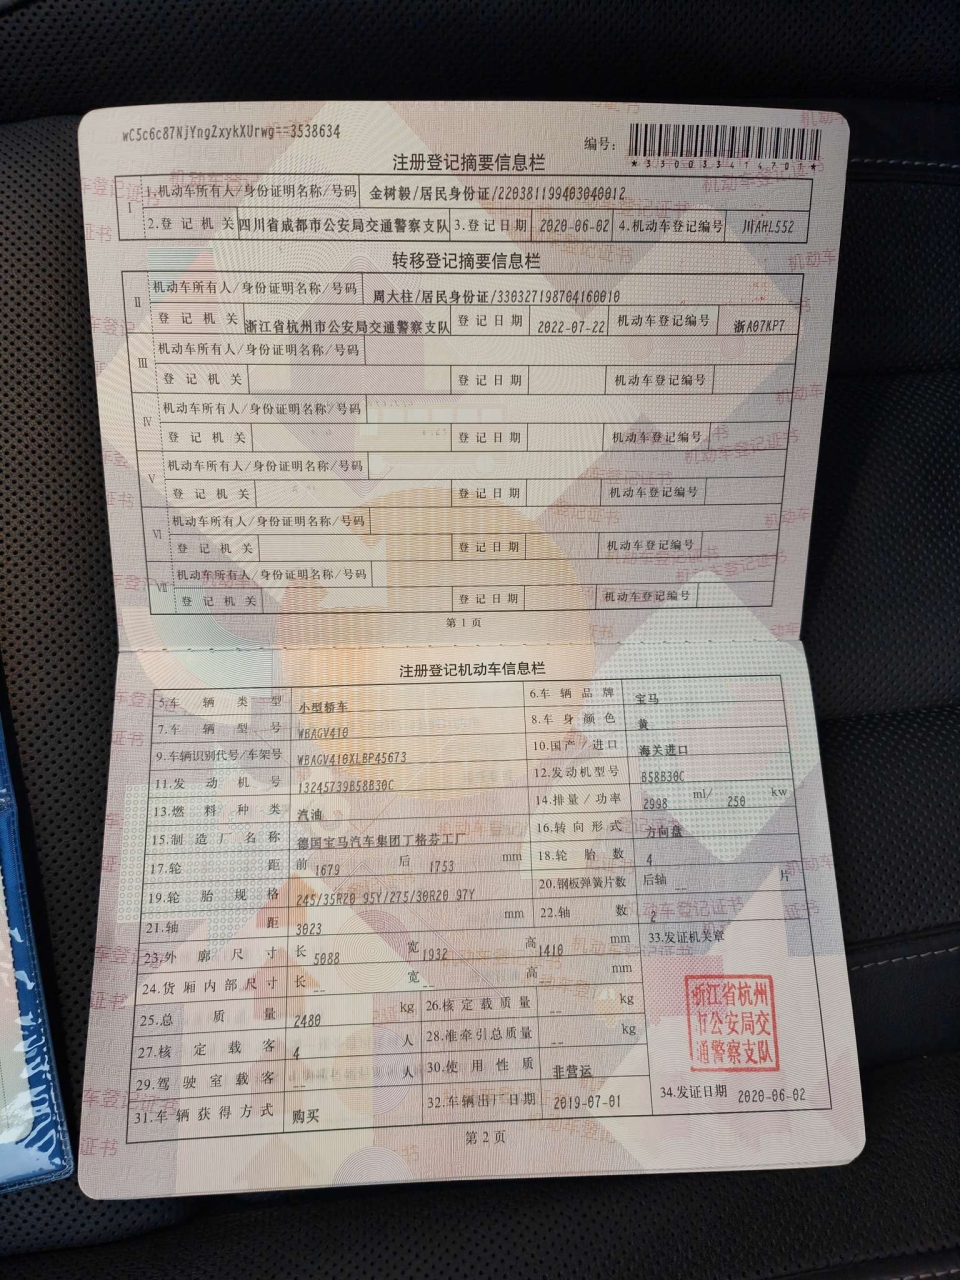 wC5c6c87NjYngZxykXUrwg==3538634
编号：
*330033414701*
注册登记摘要信息栏
Ⅰ 1.机动车所有人/身份证明名称/号码 金树毅/居民身份证/220381199403040012
2.登记机关 四川省成都市公安局交通警察支队 3.登记日期 2020-06-02 4.机动车登记编号 川AHL552
转移登记摘要信息栏
Ⅱ 机动车所有人/身份证明名称/号码 周大柱/居民身份证/330327198704160010
登记机关 浙江省杭州市公安局交通警察支队 登记日期 2022-07-22 机动车登记编号 浙A07KP7
Ⅲ 机动车所有人/身份证明名称/号码
登记机关 登记日期 机动车登记编号
Ⅳ 机动车所有人/身份证明名称/号码
登记机关 登记日期 机动车登记编号
Ⅴ 机动车所有人/身份证明名称/号码
登记机关 登记日期 机动车登记编号
Ⅵ 机动车所有人/身份证明名称/号码
登记机关 登记日期 机动车登记编号
Ⅶ 机动车所有人/身份证明名称/号码
登记机关 登记日期 机动车登记编号
第1页
注册登记机动车信息栏
5.车辆类型 小型轿车 6.车辆品牌 宝马
7.车辆型号 WBAGV410 8.车身颜色 黄
9.车辆识别代号/车架号 WBAGV410XLBP45673 10.国产/进口 海关进口
11.发动机号 13245739B58B30C 12.发动机型号 B58B30C
13.燃料种类 汽油 14.排量/功率 2998 ml/ 250 kw
15.制造厂名称 德国宝马汽车集团丁格芬工厂 16.转向形式 方向盘
17.轮距 前 1679 后 1753 mm 18.轮胎数 4
19.轮胎规格 245/35R20 95Y/275/30R20 97Y 20.钢板弹簧片数 后轴 -- 片
21.轴距 3023 mm 22.轴数 2
23.外廓尺寸 长 5088 宽 1932 高 1410 mm 33.发证机关章
24.货厢内部尺寸 长 -- 宽 -- 高 -- mm
25.总质量 2480 kg 26.核定载质量 -- kg
27.核定载客 4 人 28.准牵引总质量 -- kg
29.驾驶室载客 -- 人 30.使用性质 非营运
31.车辆获得方式 购买 32.车辆出厂日期 2019-07-01 34.发证日期 2020-06-02
浙江省杭州
市公安局交
通警察支队
第2页